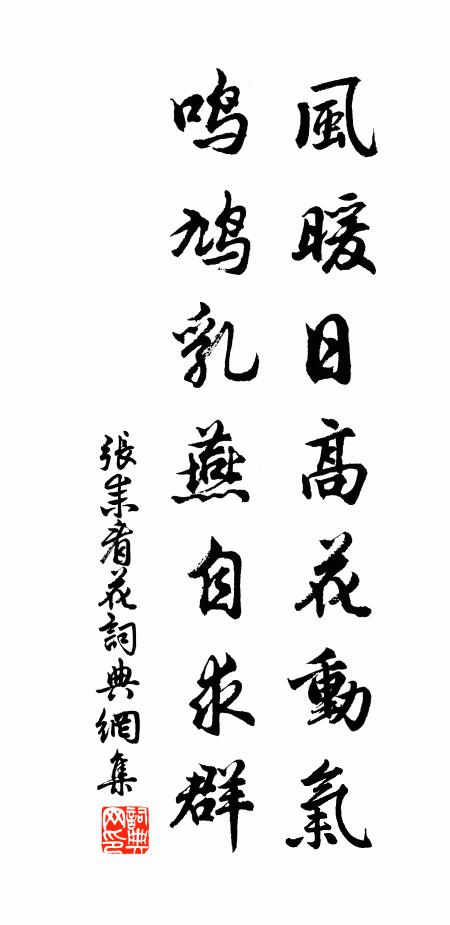 風暖日高花動氣
鸣鸠乳燕自求群
張耒看花詞典網集
詞典网印